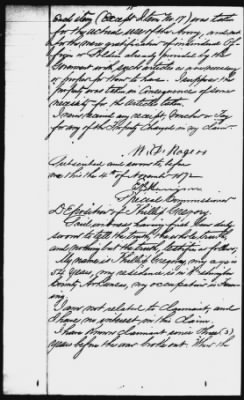 Each item (except Item No. 17) was taken
for the actual use of the Army, and not
for the mere gratification of individual Of
ficer or Soldier already furnished by the
Government with such articles as is necessary
or proper for them to have. I suppose the
property was taken in Consequence of some
necessity for the articles taken.
I never received any receipt, Voucher or Pay
for any of the Property Charged in my claim.
W. D. Rogers
Subscribed and sworn to before
me this the 4th of August 1872
Special Commissioner
Deposition of Phillip Gregory.
Said witness having first been duly
sworn to tell the truth, the whole truth
and nothing but the truth, testifies as follows,
My name is Phillip Gregory, my age is
54 years, my residence is in Washington
County Arkansas, my occupation is Farm
ing.
I am not related to Claimant, and
I have no interest in the Claim.
I have known claimant since three (3)
years before the war broke out. When the